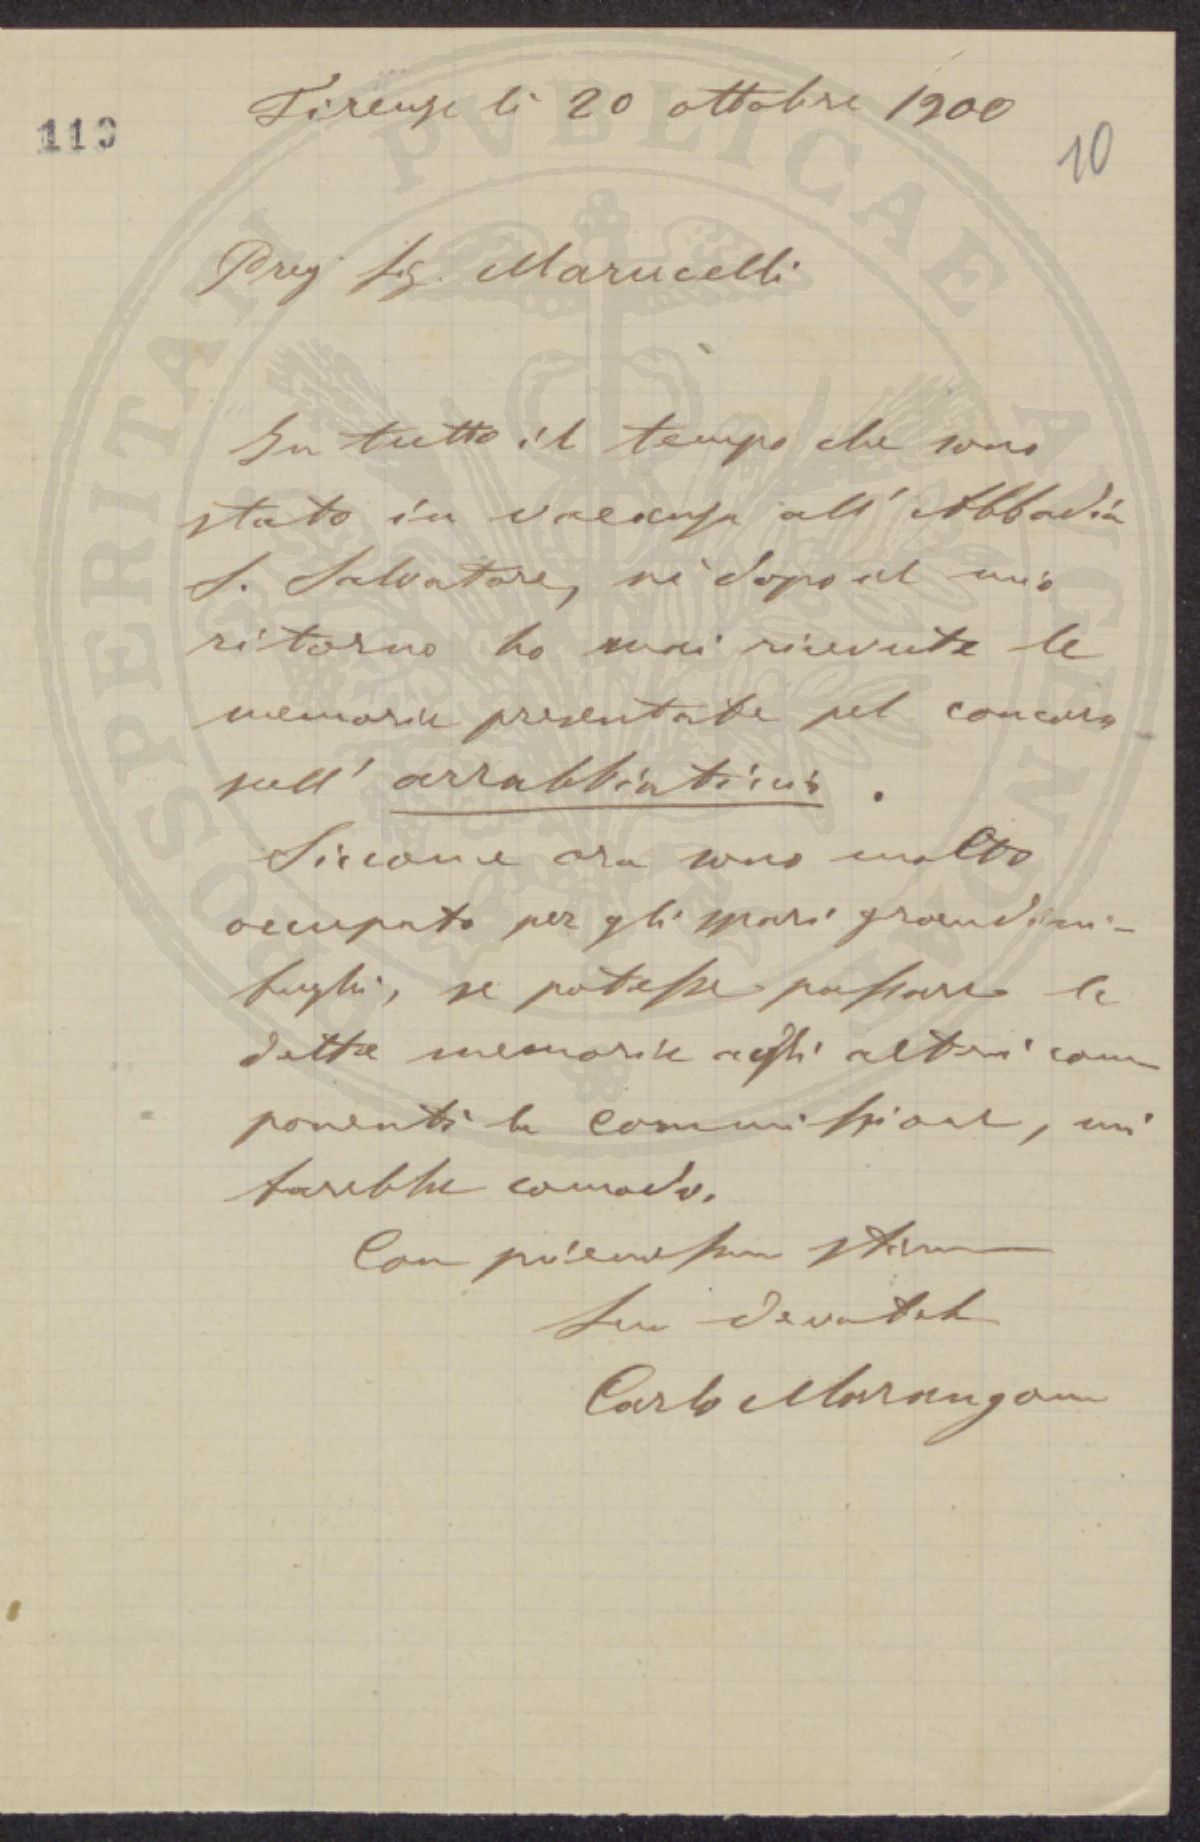 Firenze li 20 ottobre 1900
110
10
Preg Sig. Marucelli
In tutto il tempo che sono
stato in vacanza all' Abbadia
S. Salvatore, nè dopo il mio
ritorno ho mai ricevute le
memorie presentate pel concorso
sull' arrabbiaticcio.
Siccome ora sono molto
occupato per gli spari grandini-
fughi, se potesse passare le
dette memorie agli altri com
ponenti la Commissione, mi
farebbe comodo.
Con pienissima stima
Suo devot
Carlo Marangoni
PROSPERITATI PVBLICAE AVGENDAE